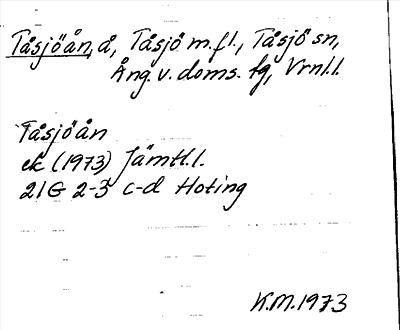 Tåsjöån, å, Tåsjö m.fl., Tåsjö sn,
Ång. v. doms. tg, Vrnl.l.
Tåsjöån
ek (1973) Jämtl.l.
21G 2-3 c-d Hoting
K.M.1973